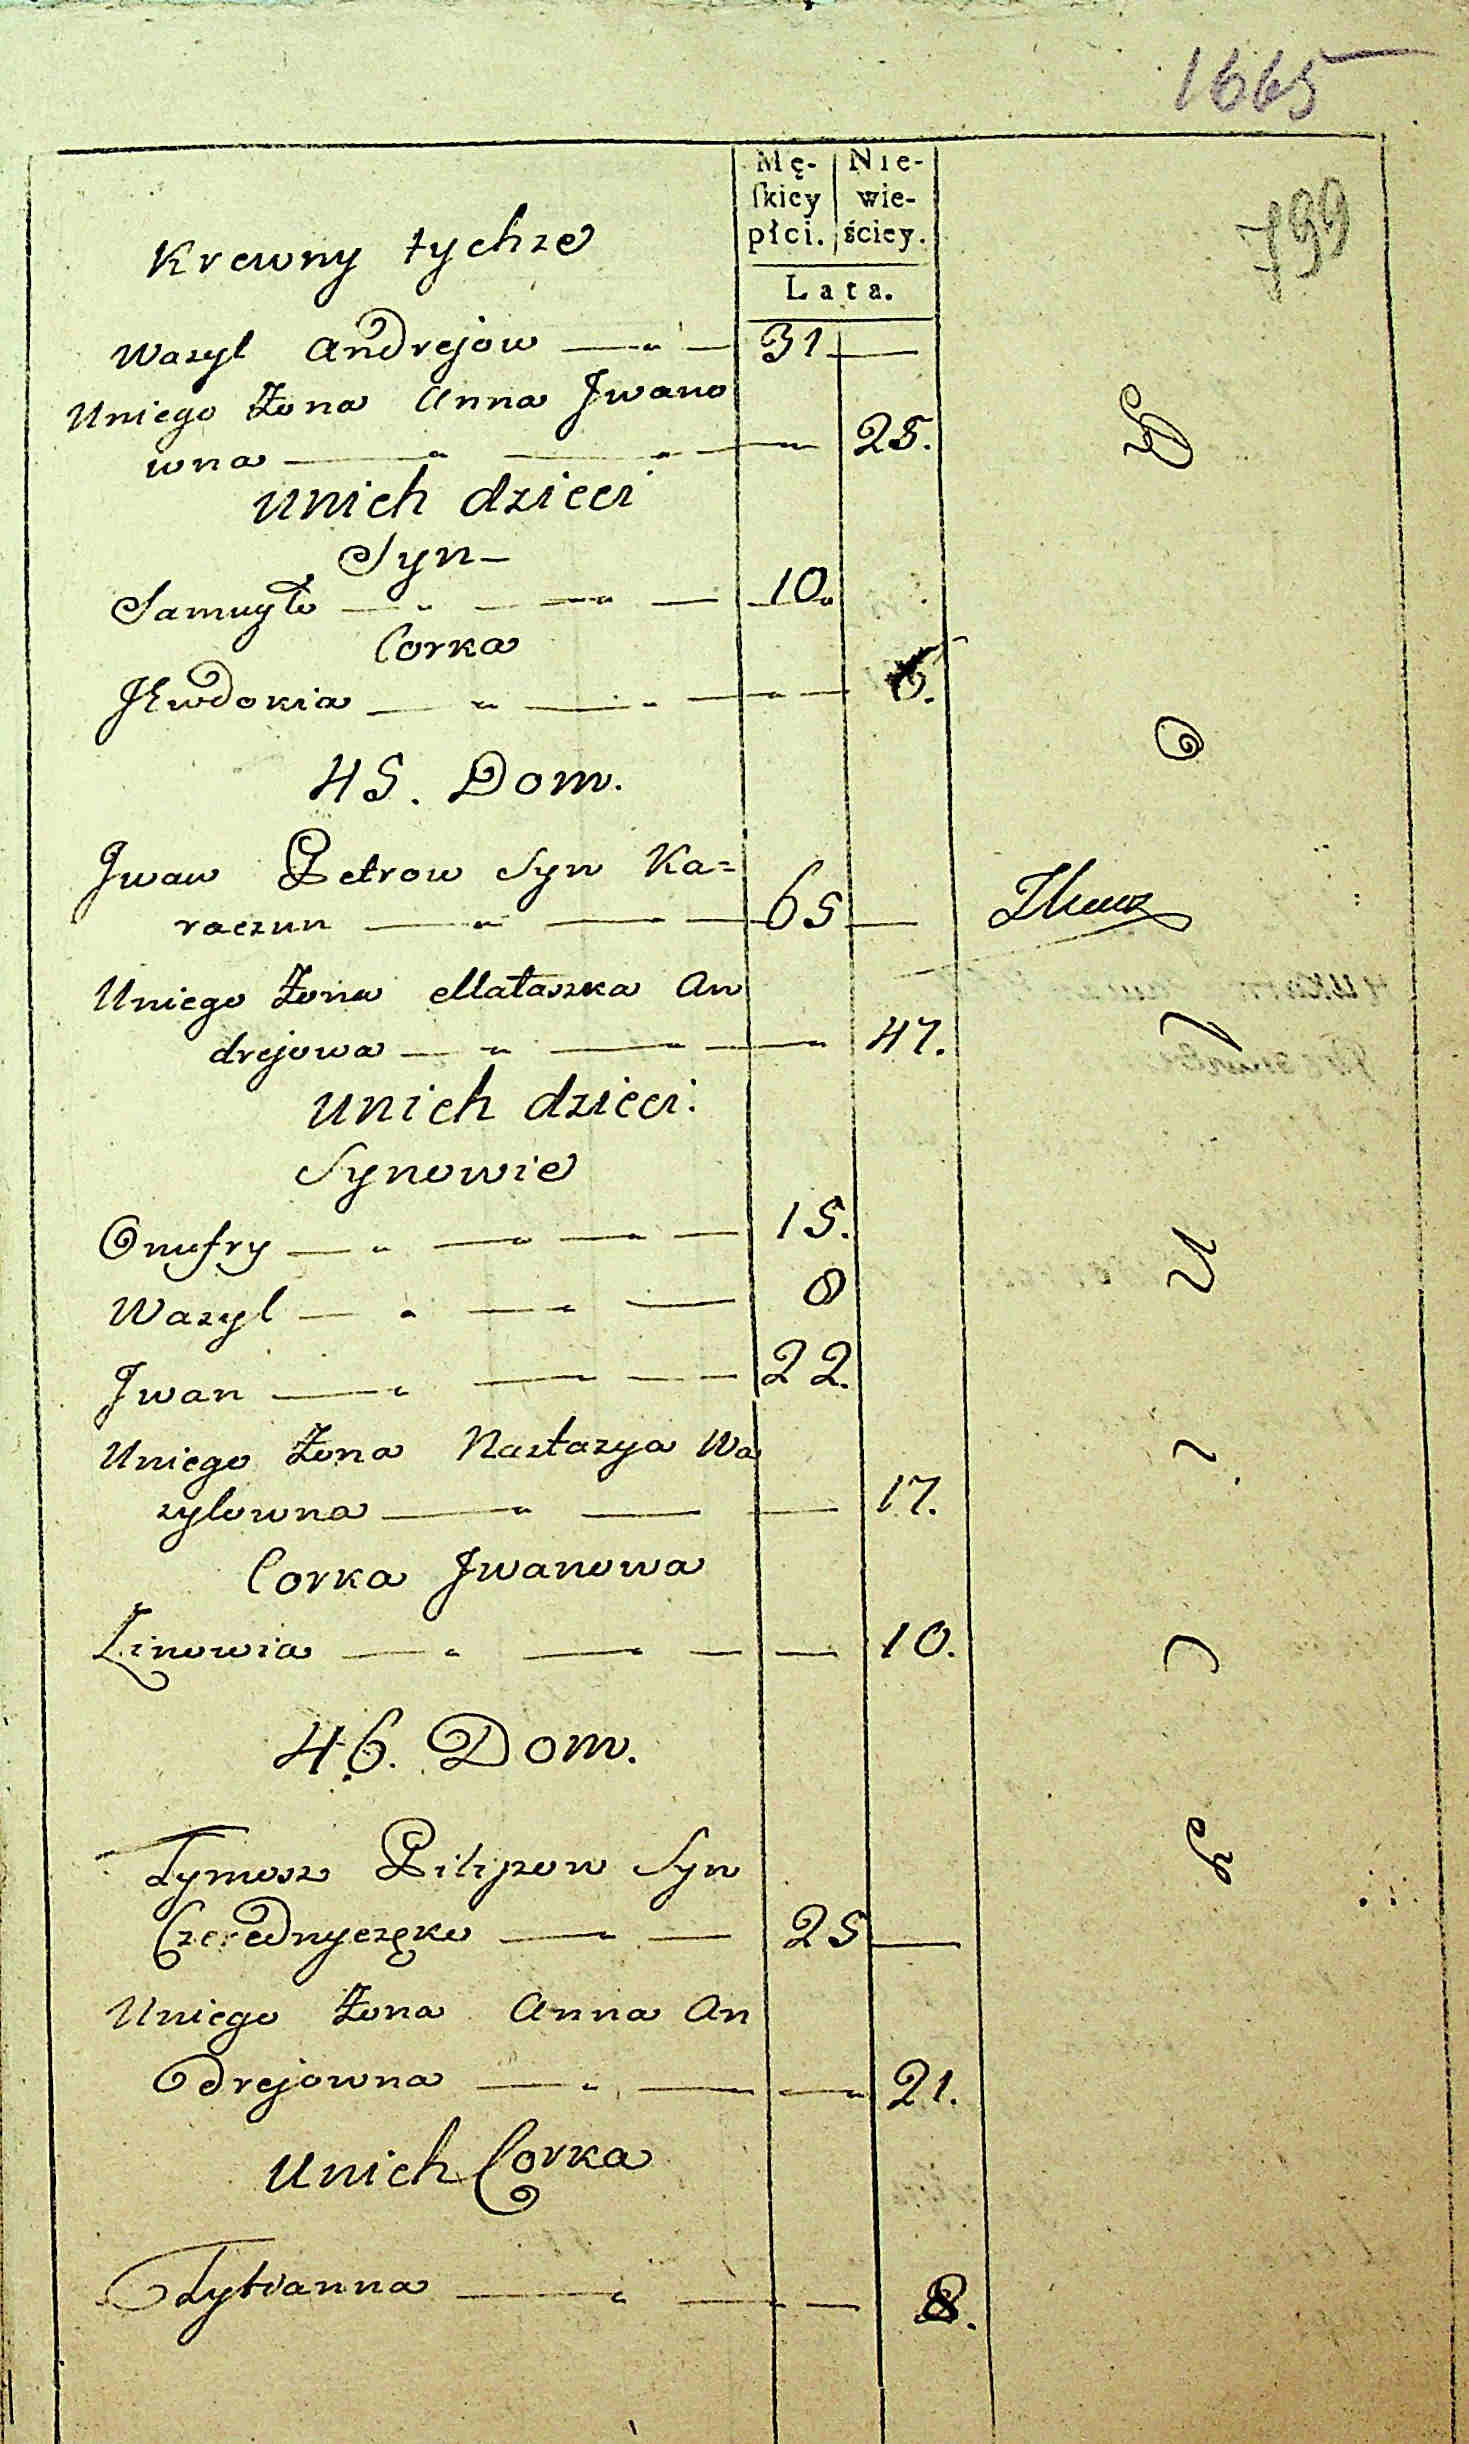 1665
799
Mę- Nie-
skiey wie-
płci. ściey.
Lata.
Krewny tychze
Wazyl Andrejow 31
Uniego Żona Anna Jwano
wna 25.
Unich dzieci
Syn
Samuyło 10.
Corka
Jewdokia
45. Dom.
Jwan Petrow Syn Ka=
raczun 65
Uniego Żona Małaszka An
drejowa 47.
Unich dzieci.
Synowie
Onufry 15.
Wazyl 8
Jwan 22.
Uniego Żona Nastazya Wa
zylowna 17.
Corka Jwanowa
Zinowia 10.
46. Dom.
Tymosz Pilipow Syn
Czerednyczęko 25
Uniego Żona Anna An
drejowna 21.
Unich Corka
Tytianna 8.